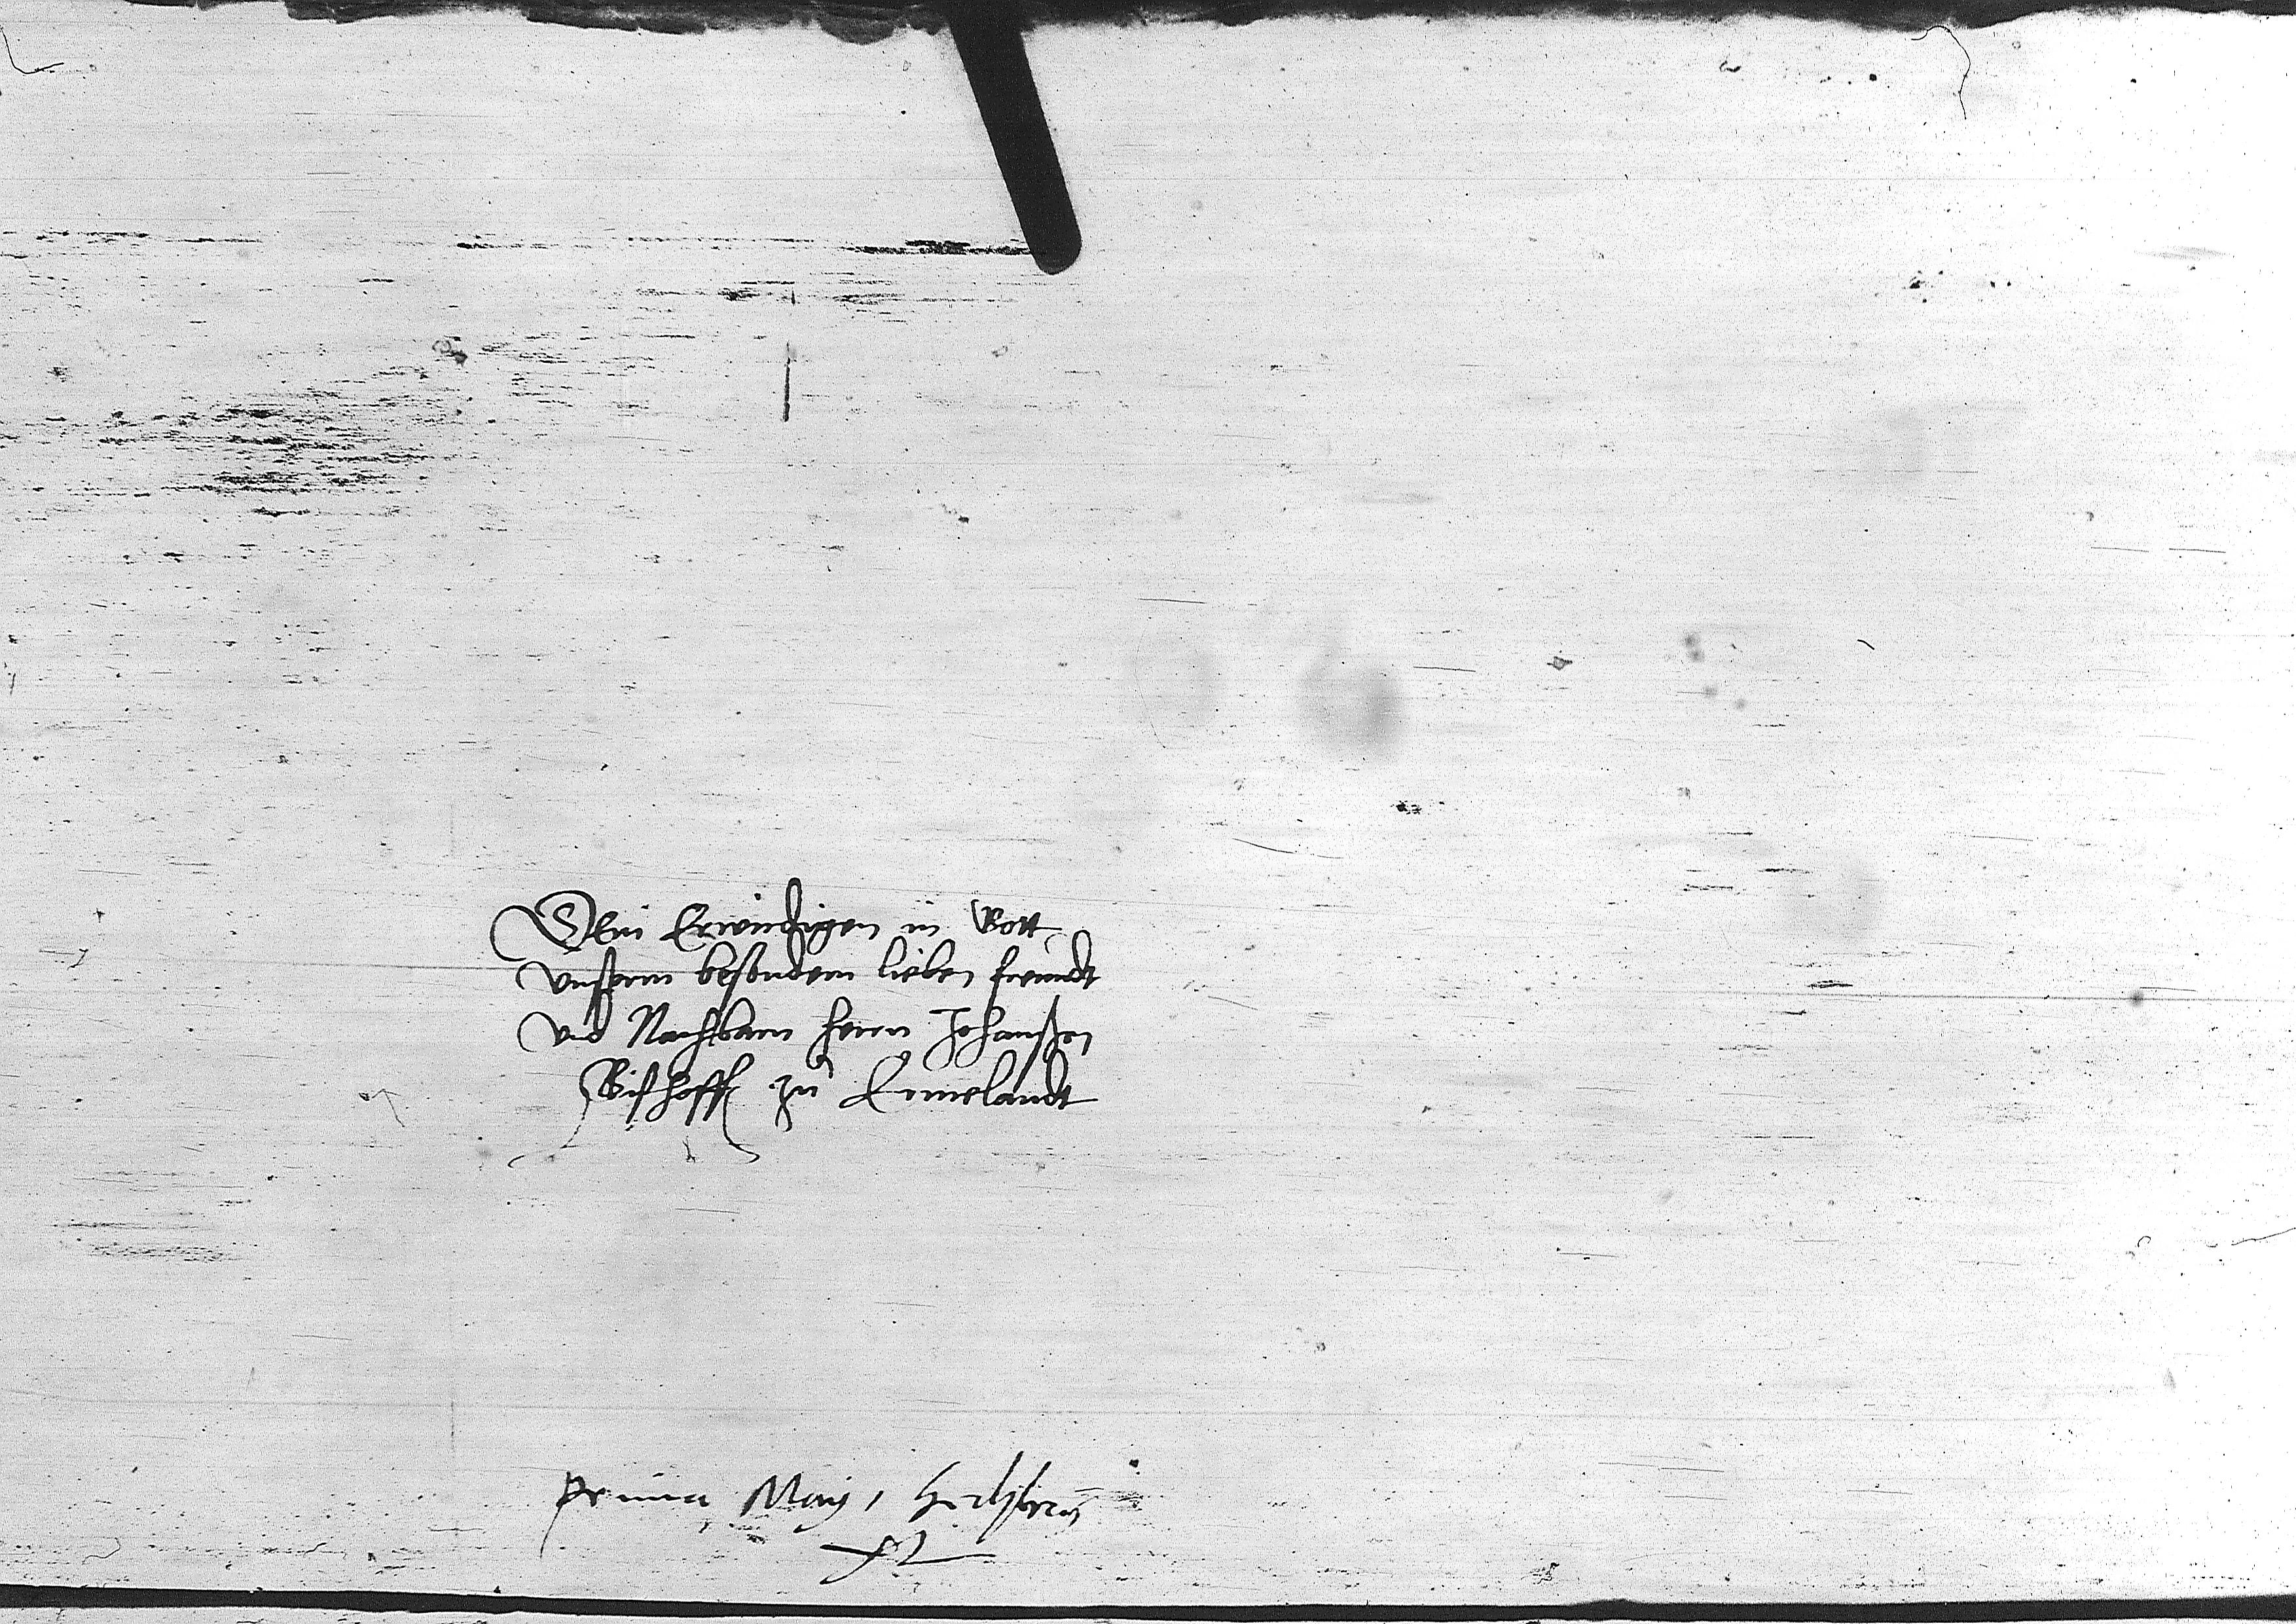 Dem Erwirdigen in Gott
vnserm besondern lieben freundt
vnd Nachbarn herrn Johanssen
Bischoff zu Ermelandt
prima Maij, heilsberg
XL